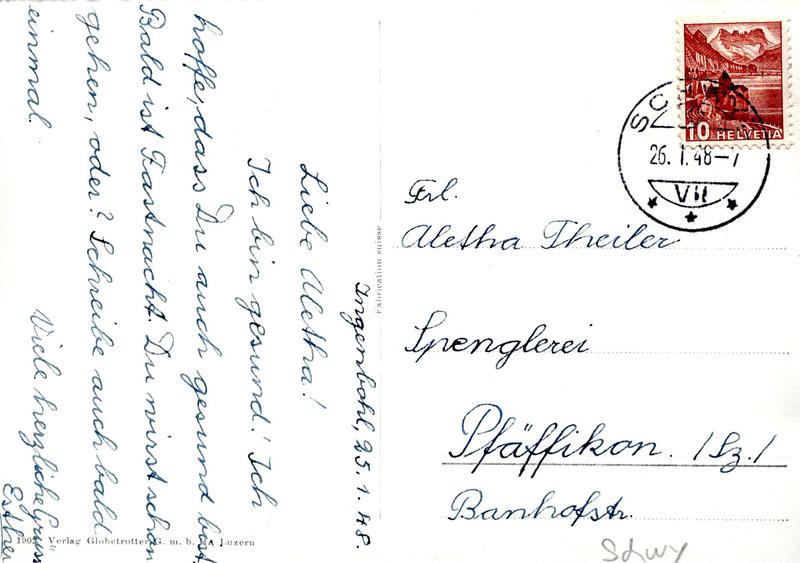 Ingenbohl, 25.1.48.
Liebe Aletha!
Ich bin gesund! Ich
hoffe, dass Du auch gesund bist.
Bald ist Fastnacht. Du wirst schon
gehen, oder? Schreibe auch bald
einmal.
Viele herzliche Grüsse
Esther
Verlag Globetrotter G. m. b. H. Luzern
Fabrication suisse
10 HELVETIA
26. 1. 48–7
VII
Frl.
Aletha Theiler
Spenglerei
Pfäffikon. /Sz./
Banhofstr.
Schwy